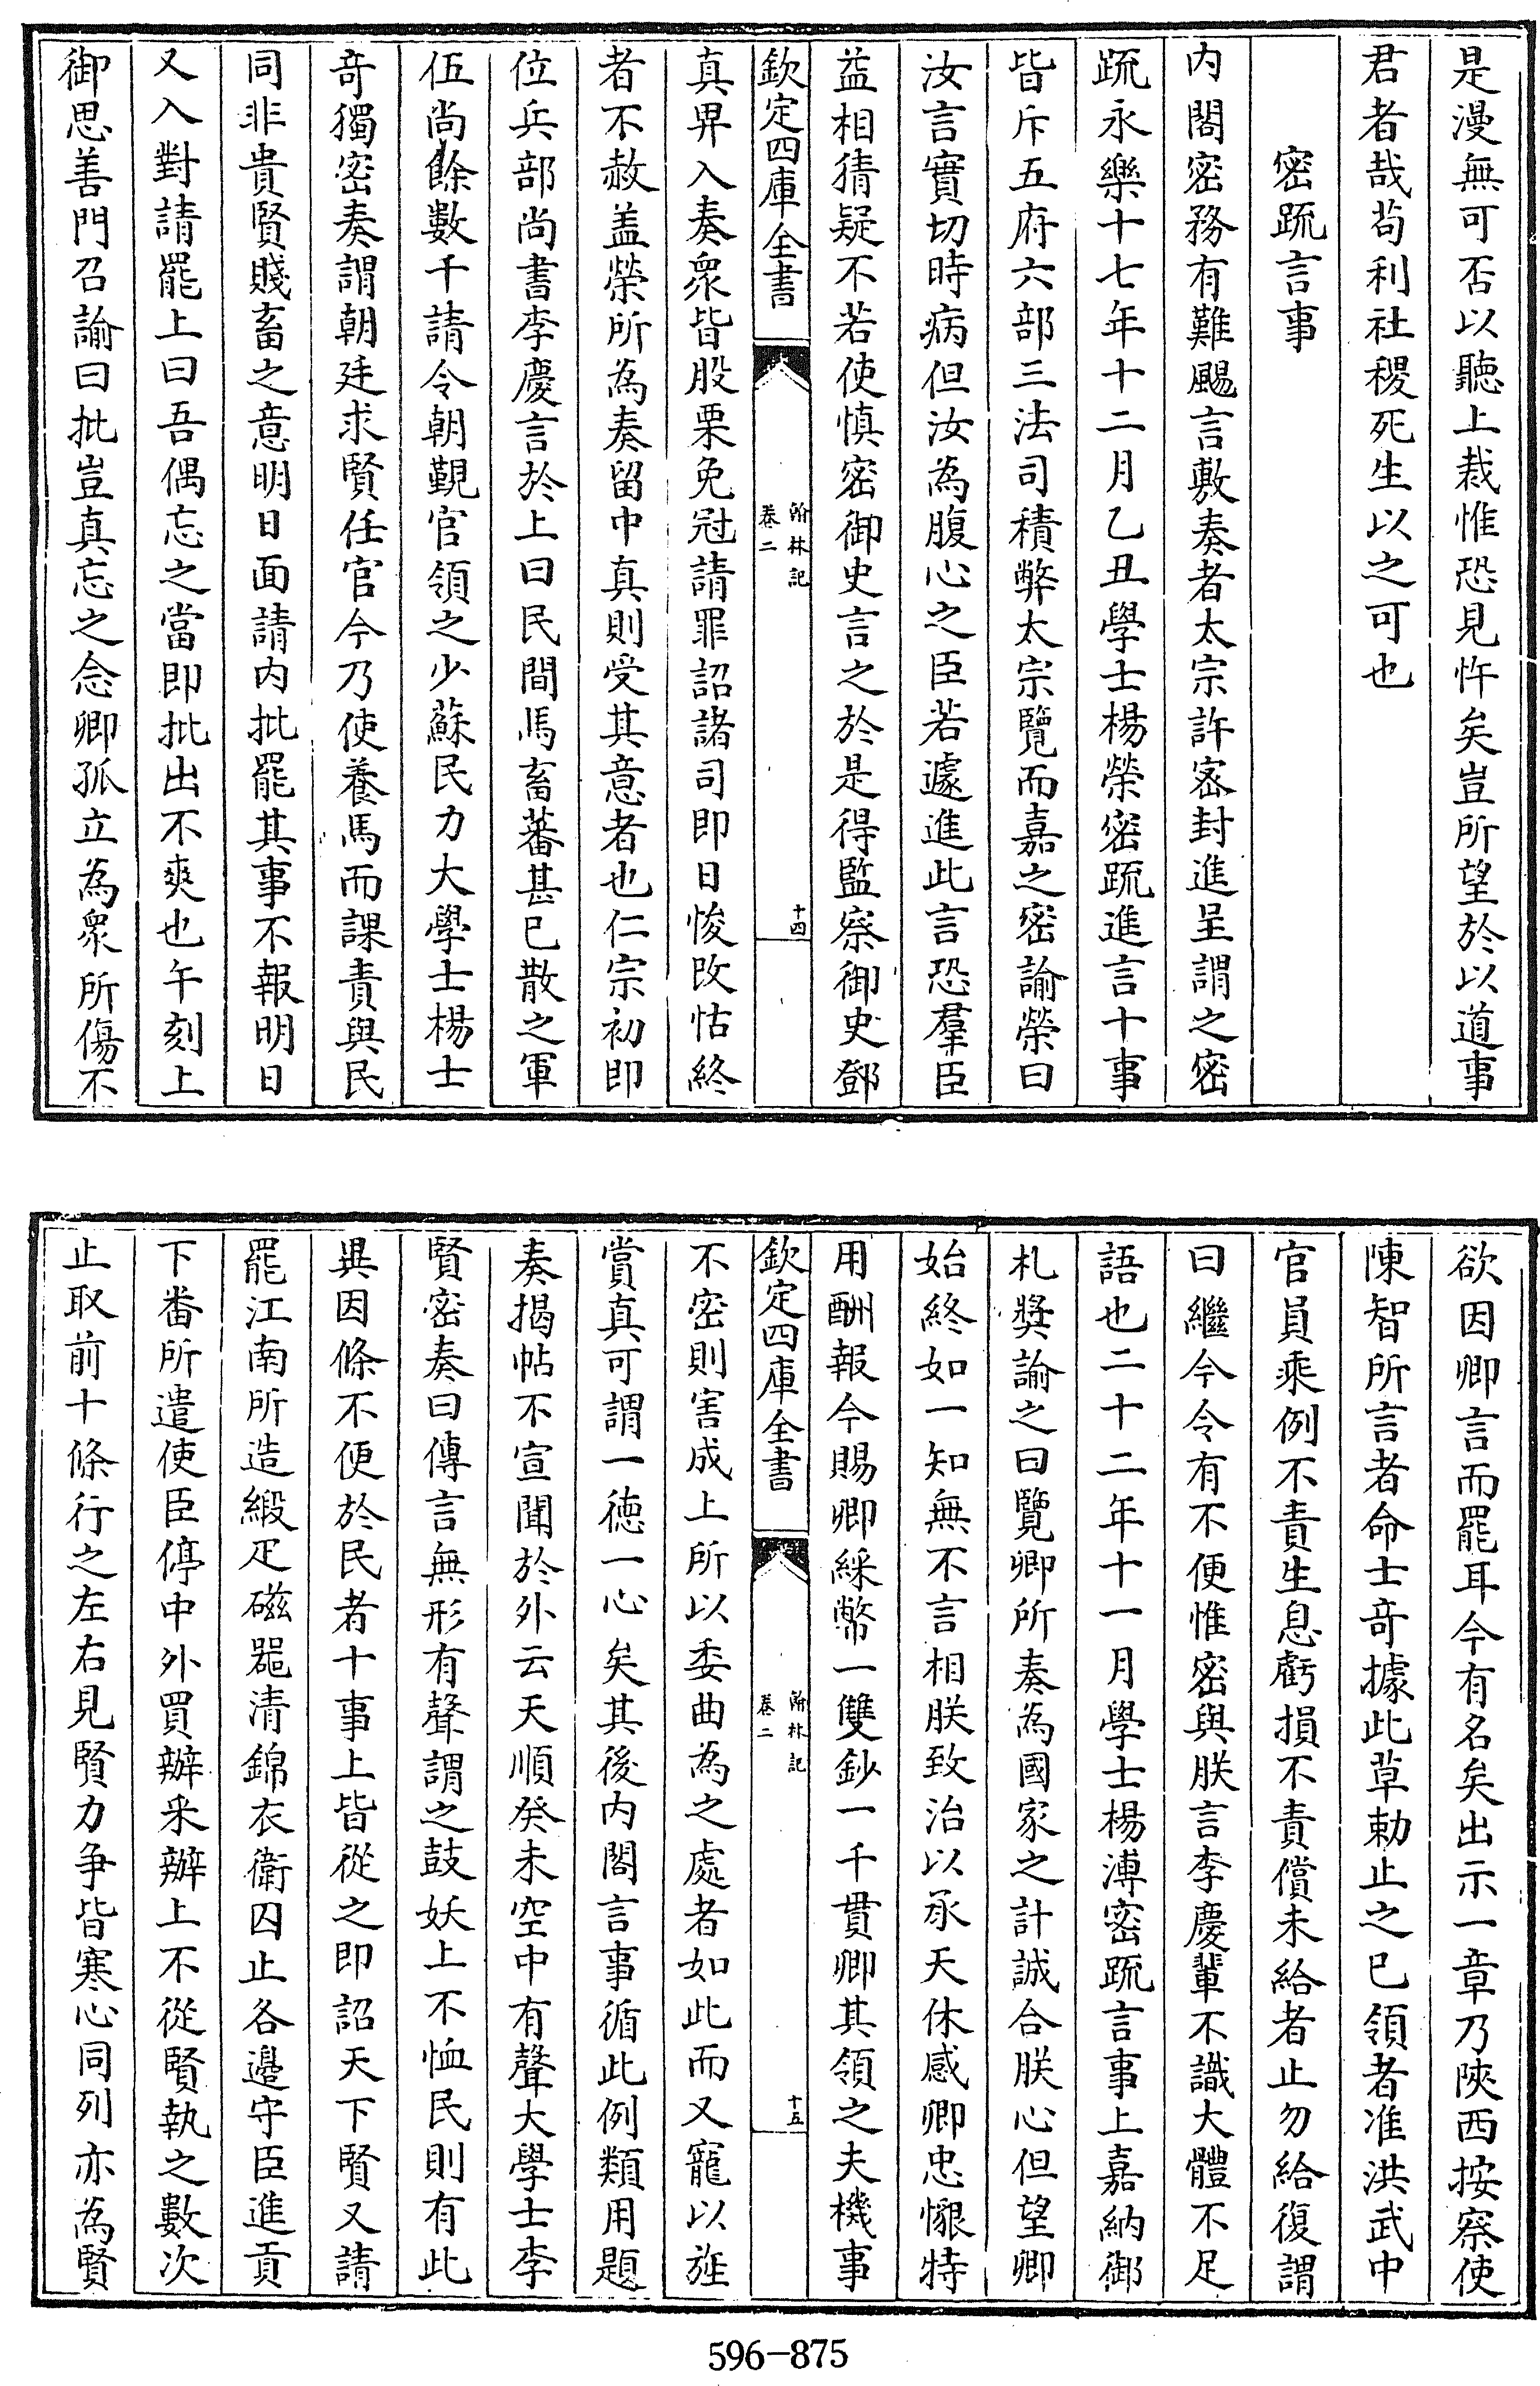 是漫無可否以聽上裁惟恐見忤矣豈所望於以道事
君者哉苟利社稷死生以之可也
密疏言事
内閣密務有難颺言敷奏者太宗許密封進呈謂之密
疏永樂十七年十二月乙丑學士楊榮密疏進言十事
皆斥五府六部三法司積弊太宗覽而嘉之密諭榮曰
汝言實切時病但汝為腹心之臣若遽進此言恐羣臣
益相猜疑不若使慎密御史言之於是得監察御史鄧
欽定四庫全書
翰林記
卷二
十四
真畀入奏衆皆股栗免冠請罪詔諸司即日悛改怙終
者不赦盖榮所為奏留中真則受其意者也仁宗初即
位兵部尚書李慶言於上曰民間馬畜蕃甚已散之軍
伍尚餘數千請令朝覲官領之少蘇民力大學士楊士
竒獨密奏謂朝廷求賢任官今乃使養馬而課責與民
同非貴賢賤畜之意明日面請内批罷其事不報明日
又入對請罷上曰吾偶忘之當即批出不爽也午刻上
御思善門召諭曰批豈真忘之念卿孤立為衆所傷不
欲因卿言而罷耳今有名矣出示一章乃陜西按察使
陳智所言者命士竒據此草勅止之已領者准洪武中
官員乘例不責生息虧損不責償未給者止勿給復謂
曰繼今令有不便惟密與朕言李慶輩不識大體不足
語也二十二年十一月學士楊溥密疏言事上嘉納御
札奬諭之曰覽卿所奏為國家之計誠合朕心但望卿
始終如一知無不言相朕致治以承天休感卿忠懇特
用酬報今賜卿綵幣一雙鈔一千貫卿其領之夫機事
欽定四庫全書
翰林記
卷二
十五
不密則害成上所以委曲為之處者如此而又寵以旌
賞真可謂一徳一心矣其後内閣言事循此例類用題
奏揭帖不宣聞於外云天順癸未空中有聲大學士李
賢密奏曰傳言無形有聲謂之鼓妖上不恤民則有此
異因條不便於民者十事上皆從之即詔天下賢又請
罷江南所造緞疋磁器清錦衣衛囚止各邊守臣進貢
下番所遣使臣停中外買辦采辦上不從賢執之數次
止取前十條行之左右見賢力争皆寒心同列亦為賢
596-875